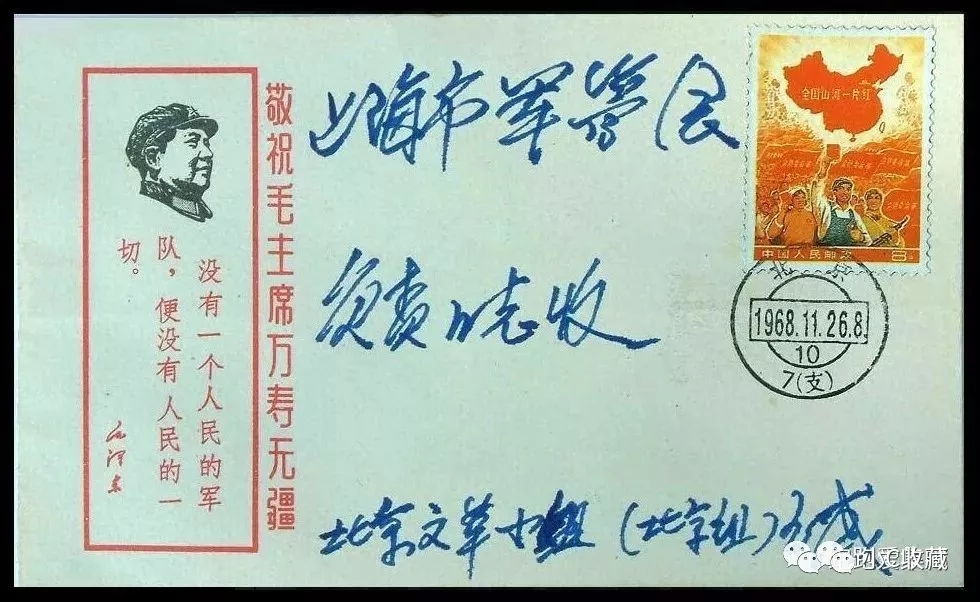 敬祝毛主席万寿无疆
没有一个人民的军
队，便没有人民的一
切。
毛泽东
上海市军管会
负责同志收
北京文革小组（北京组）
全国山河一片红
中国人民邮政 8分
北京
1968.11.26.8
10
7(支)
收藏